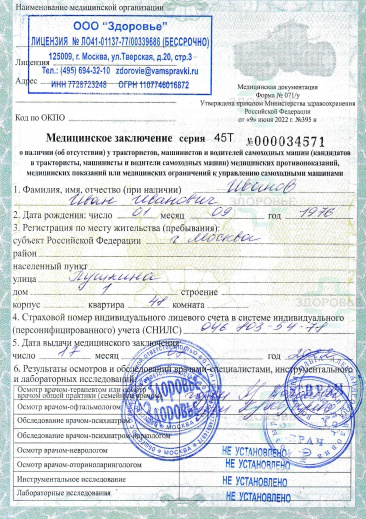 Наименование медицинской организации
ООО "Здоровье"
ЛИЦЕНЗИЯ № ЛО41-01137-77/00339686 (БЕССРОЧНО)
Лицензия
125009, г. Москва, ул.Тверская, д.20, стр.3
Тел.: (495) 694-32-10 zdorovie@vamspravki.ru
Адрес
ИНН 7728723248 ОГРН 1107746016872
Код по ОКПО
Медицинская документация
Форма № 071/у
Утверждена приказом Министерства здравоохранения
Российской Федерации
от «9» июня 2022 г. №395 н
Медицинское заключение серия 45Т №000034571
о наличии (об отсутствии) у трактористов, машинистов и водителей самоходных машин (кандидатов
в трактористы, машинисты и водители самоходных машин) медицинских противопоказаний,
медицинских показаний или медицинских ограничений к управлению самоходными машинами
1. Фамилия, имя, отчество (при наличии) Иванов
Иван Иванович
2. Дата рождения: число 01 месяц 09 год 1976
3. Регистрация по месту жительства (пребывания):
субъект Российской Федерации г Москва
район
населенный пункт
улица Пушкина
дом 1 строение
корпус квартира 48 комната
4. Страховой номер индивидуального лицевого счета в системе индивидуального
(персонифицированного) учета (СНИЛС) 046 103-54-78
5. Дата выдачи медицинского заключения:
число 17 месяц год
6. Результаты осмотров и обследований врачами-специалистами, инструментального
и лабораторных исследований
Осмотр врачом-терапевтом или осмотр
врачом общей практики (семейным врачом)
Осмотр врачом-офтальмологом
Осмотр врачом-психиатром
Осмотр врачом-психиатром-наркологом
Осмотр врачом-неврологом НЕ УСТАНОВЛЕНО
Осмотр врачом-оториноларингологом НЕ УСТАНОВЛЕНО
Инструментальное исследование НЕ УСТАНОВЛЕНО
Лабораторные исследования НЕ УСТАНОВЛЕНО
ЗДОРОВЬЕ
ЗДОРОВЬЕ
МОСКВА
ВРАЧ